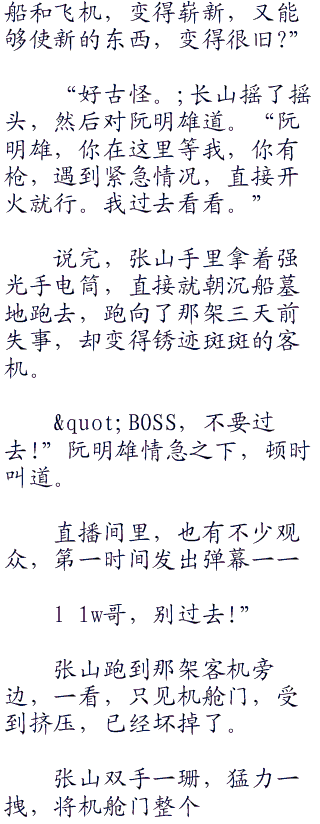 船和飞机，变得崭新，又能
够使新的东西，变得很旧?”
“好古怪。;长山摇了摇
头，然后对阮明雄道。“阮
明雄，你在这里等我，你有
枪，遇到紧急情况，直接开
火就行。我过去看看。”
说完，张山手里拿着强
光手电筒，直接就朝沉船墓
地跑去，跑向了那架三天前
失事，却变得锈迹斑斑的客
机。
&quot;BOSS，不要过
去!”阮明雄情急之下，顿时
叫道。
直播间里，也有不少观
众，第一时间发出弹幕一一
1 1w哥，别过去!”
张山跑到那架客机旁
边，一看，只见机舱门，受
到挤压，已经坏掉了。
张山双手一珊，猛力一
拽，将机舱门整个